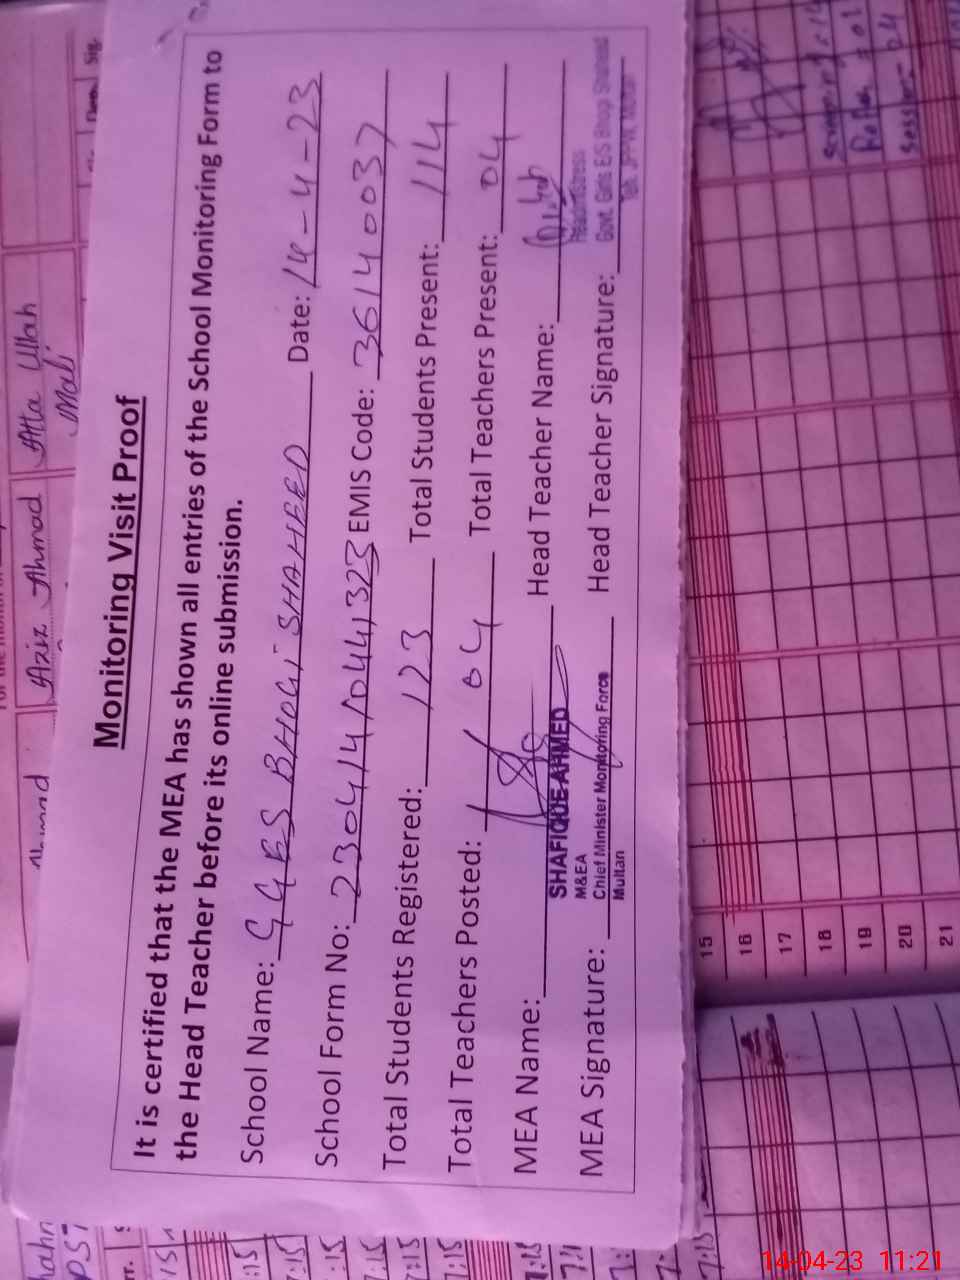 Monitoring Visit Proof
It is certified that the MEA has shown all entries of the School Monitoring Form to
the Head Teacher before its online submission.
School Name: GGES BHOGI SHAHEED Date: 14-4-23
School Form No: 23041410441323 EMIS Code: 36140037
Total Students Registered: 123 Total Students Present: 114
Total Teachers Posted: 04 Total Teachers Present: 04
MEA Name: Head Teacher Name:
SHAFIQUE AHMED
M&EA
Chief Minister Monitoring Force
Multan
Headmistress
Govt. Girls E/S Bhogi Shaheed
MEA Signature: Head Teacher Signature:
Aziz Ahmad
Atta Ullah
Mali
Sig.
15
16
17
18
19
20
21
7:15
7:15
7:15
7:15
7:15
14-04-23 11:21